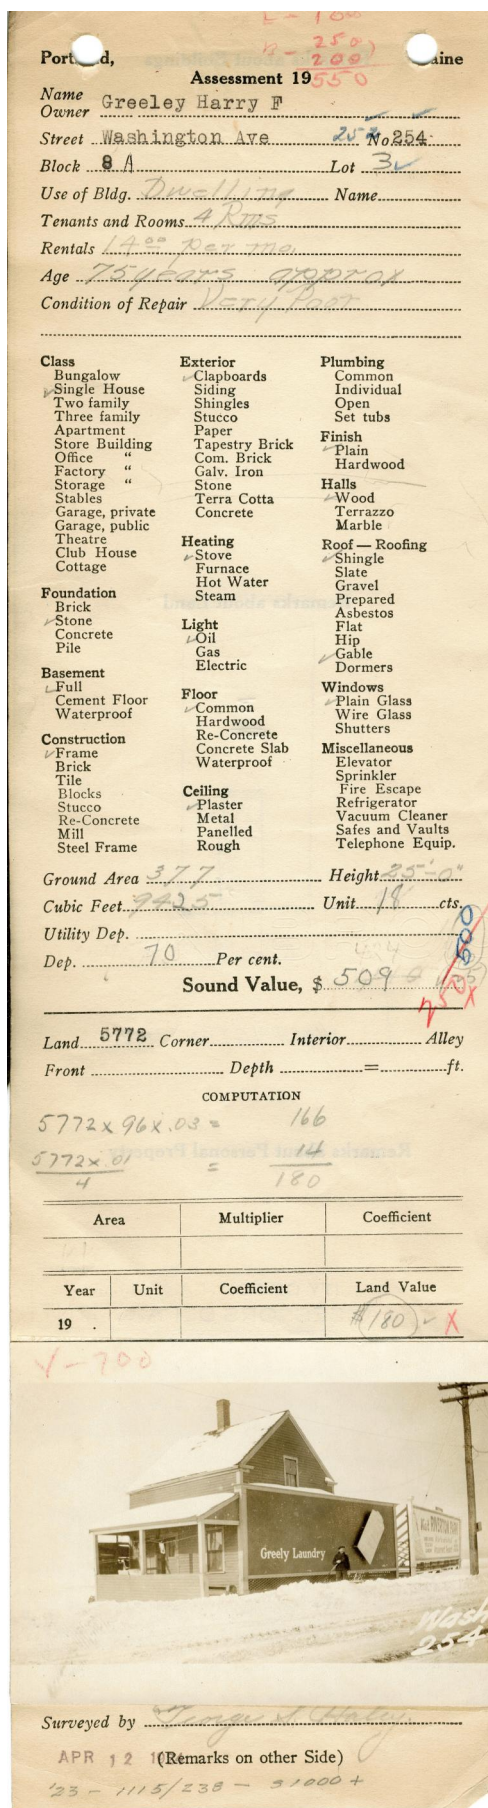 L - 100
B - 250)
200
Portland, Maine
Assessment 19 550
Name
Owner Greeley Harry F
Street Washington Ave 252 No 254
Block 8 A Lot 3
Use of Bldg. Dwelling Name
Tenants and Rooms 4 Rms
Rentals 14 00 per mo.
Age 75 years approx
Condition of Repair Very Poor
Class
Bungalow
Single House
Two family
Three family
Apartment
Store Building
Office "
Factory "
Storage "
Stables
Garage, private
Garage, public
Theatre
Club House
Cottage
Foundation
Brick
Stone
Concrete
Pile
Basement
Full
Cement Floor
Waterproof
Construction
Frame
Brick
Tile
Blocks
Stucco
Re-Concrete
Mill
Steel Frame
Exterior
Clapboards
Siding
Shingles
Stucco
Paper
Tapestry Brick
Com. Brick
Galv. Iron
Stone
Terra Cotta
Concrete
Heating
Stove
Furnace
Hot Water
Steam
Light
Oil
Gas
Electric
Floor
Common
Hardwood
Re-Concrete
Concrete Slab
Waterproof
Ceiling
Plaster
Metal
Panelled
Rough
Plumbing
Common
Individual
Open
Set tubs
Finish
Plain
Hardwood
Halls
Wood
Terrazzo
Marble
Roof — Roofing
Shingle
Slate
Gravel
Prepared
Asbestos
Flat
Hip
Gable
Dormers
Windows
Plain Glass
Wire Glass
Shutters
Miscellaneous
Elevator
Sprinkler
Fire Escape
Refrigerator
Vacuum Cleaner
Safes and Vaults
Telephone Equip.
Ground Area 377 Height 25'-0"
Cubic Feet 9425 Unit 18 cts.
Utility Dep.
Dep. 70 Per cent.
Sound Value, $ 509
500
250 X
Land 5772 Corner Interior Alley
Front Depth = ft.
COMPUTATION
5772 x 96 x .03 = 166
5772 x .01 = 14
4
180
Area Multiplier Coefficient
Year Unit Coefficient Land Value
19 . $ 180 X
V - 700
Greely Laundry
RIVERTON PARK
Wash
254
Surveyed by George S. Haley
APR 12
(Remarks on other Side)
'23 - 1115/238 - $1000 +